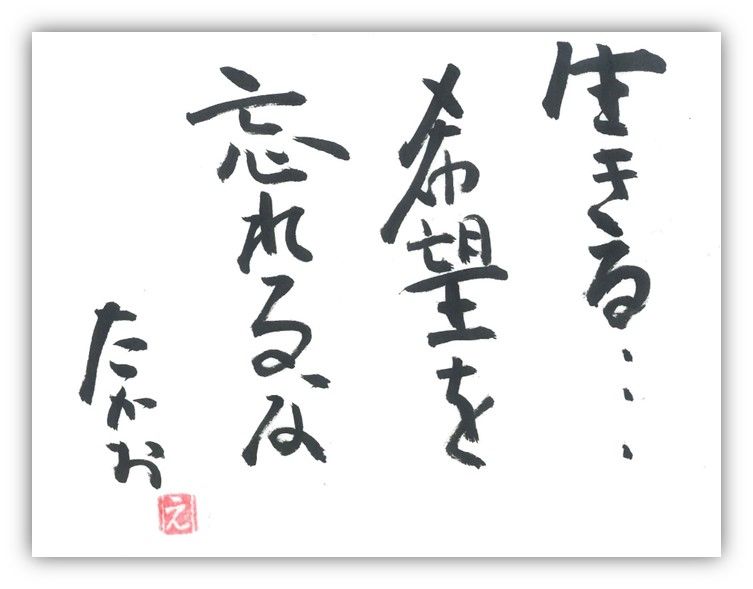 生きる...
希望を
忘れるな
たかお
え